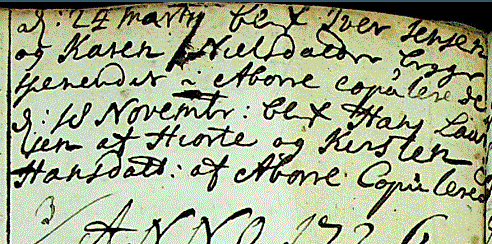 d: 24 marty blef Iver Jensen
og Karen Nielsdatter begge
i Aborre copulerede
d: 18 Novembr: blef Hans Laur
sen af Hiorte og Kirsten
Hansdatt: af Aborre Copulered
ANNO 172